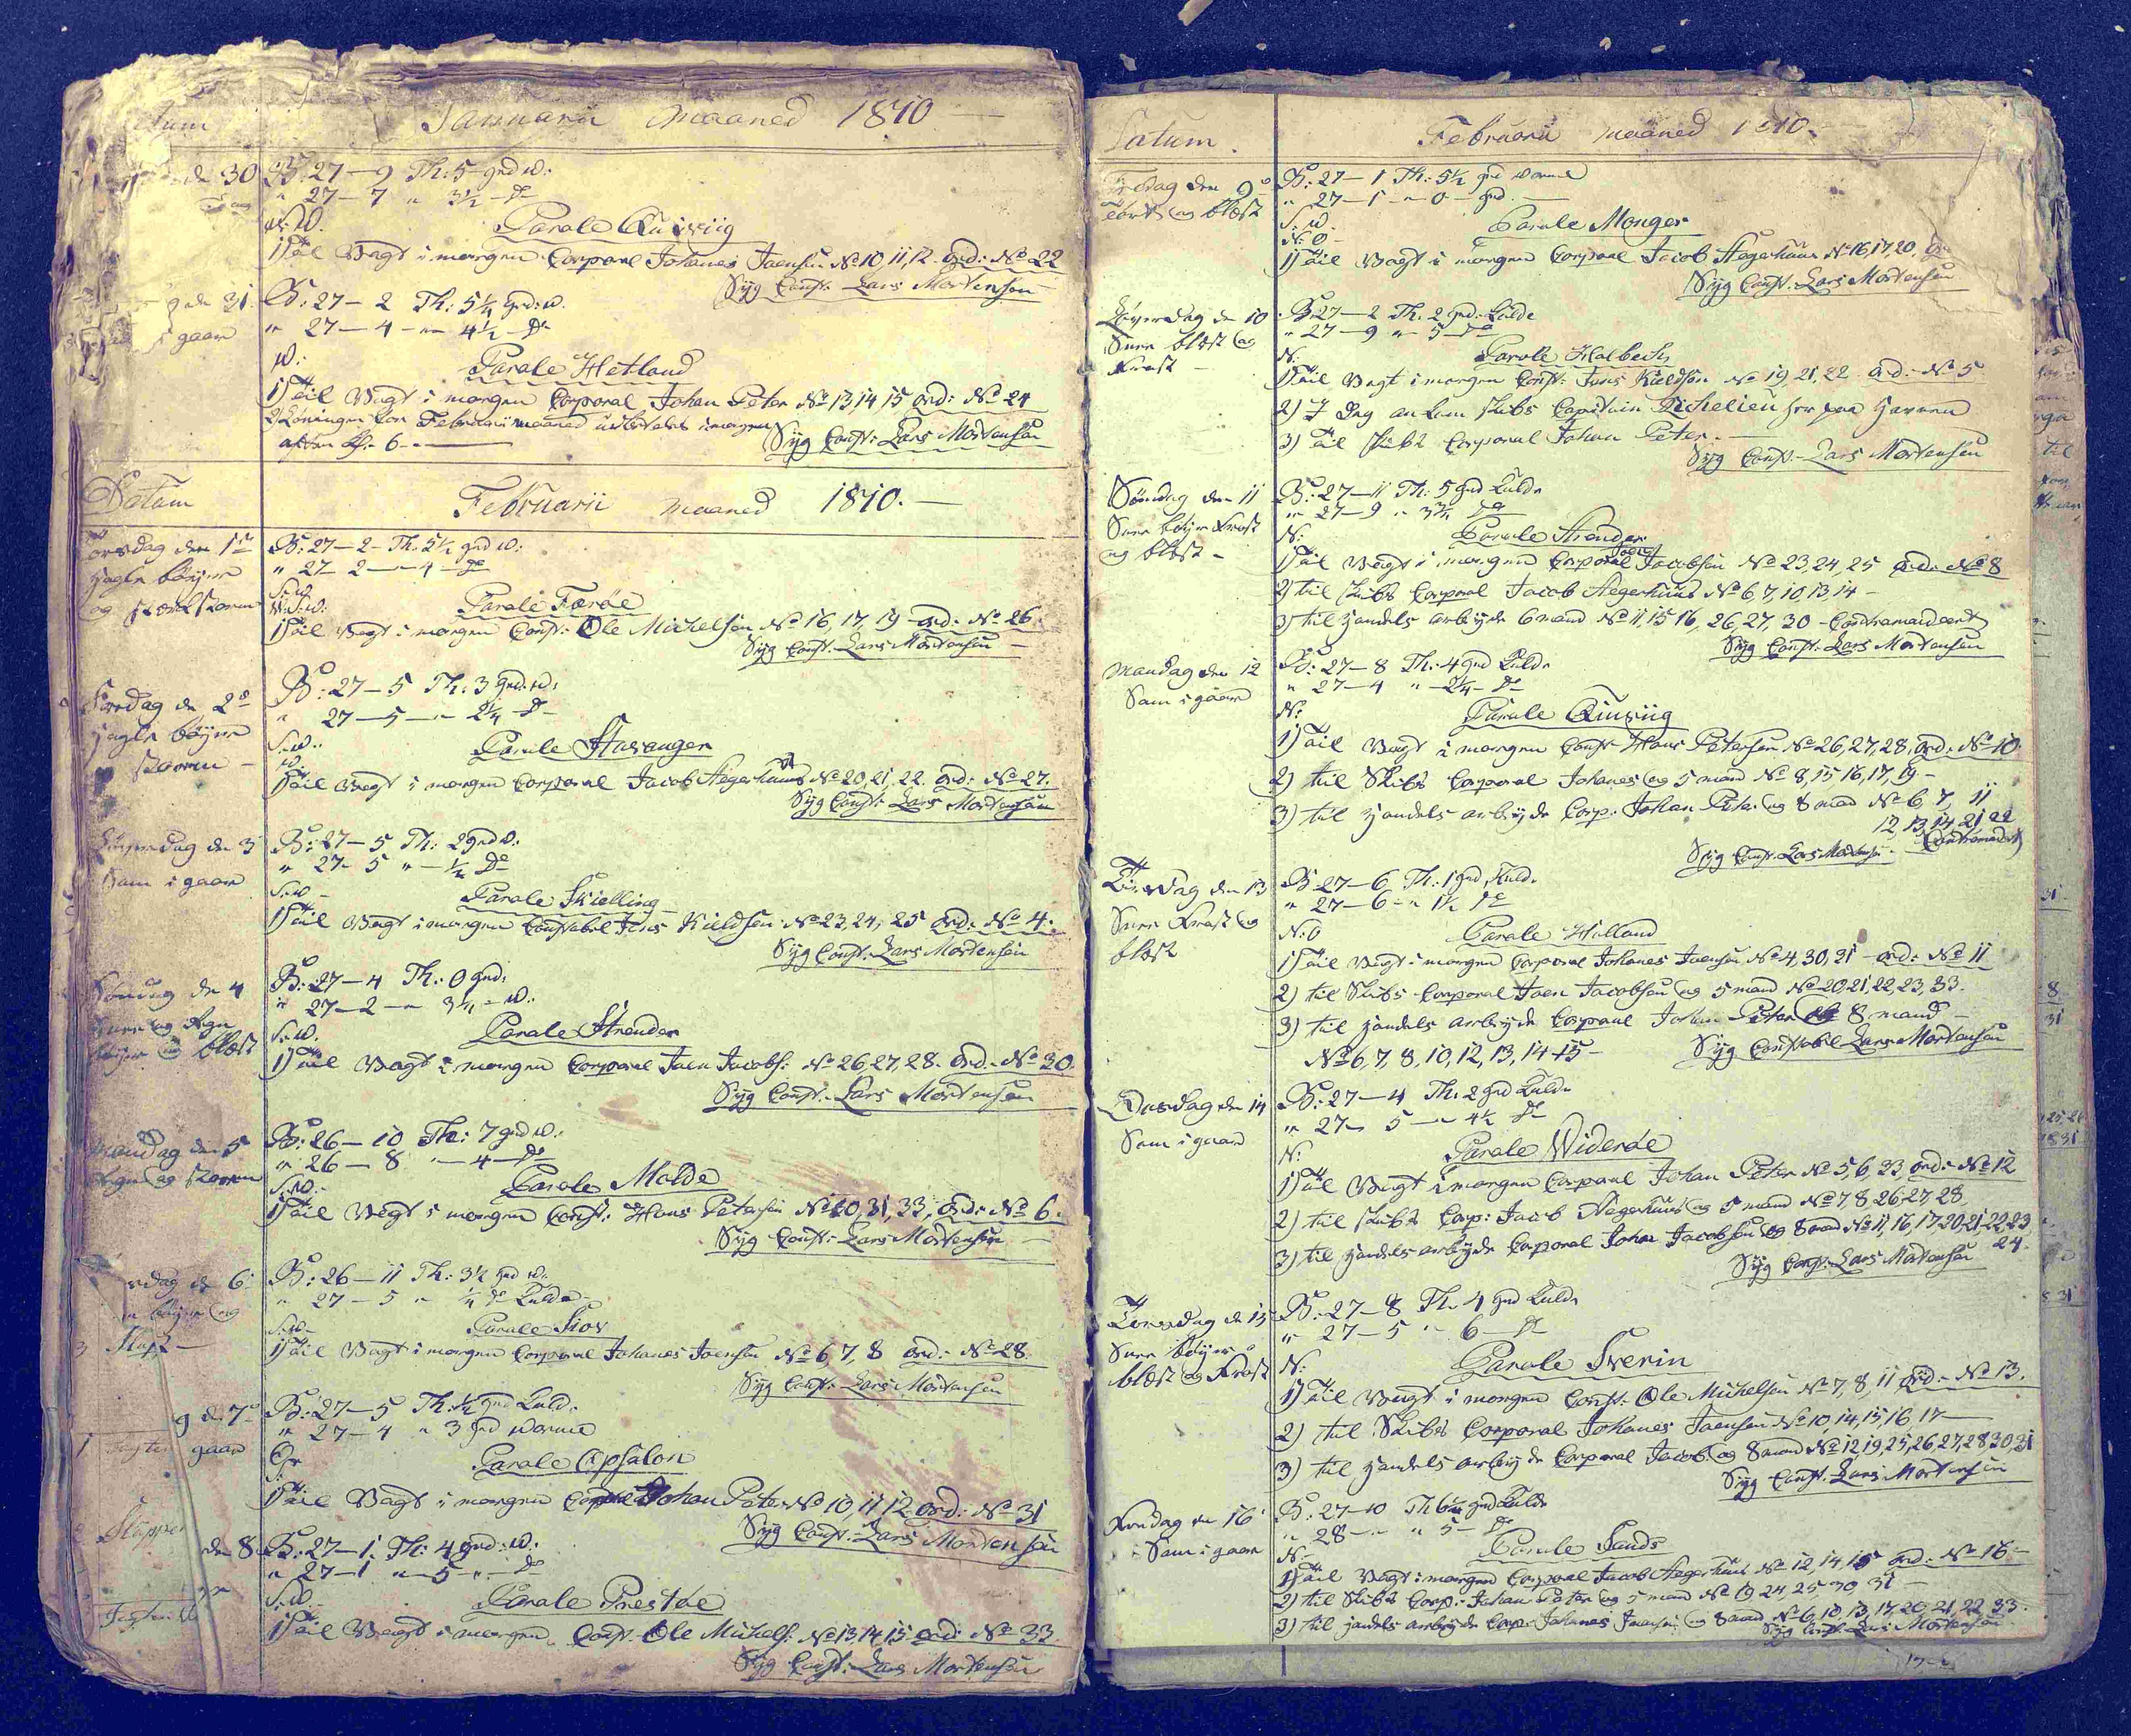 Januarii Maaned 1810
de 30
B: 27-9 Th: 5 grd W:
" 27-7 " 3½ - Do
W.
Parole Quiviig
1) Til Vagt i morgen Corporal Johanes Joensen No 10, 11, 12. Ord: No 22
Syg Const: Lars Mortensen
31.
i gaar
B: 27-2 Th: 5¼ Grd: W.
" 27-4 - " 4½ - Do
W:
Parole Hetland
1) Til Vagt i morgen Corporal Johan Peter No 13 14 15 Ord: No 24
2) Lønningen for Februarii maaned imorgen
Kl. 6.
Syg Const: Lars Mortensen
Datum
Februarii maaned 1810.
Torsdag den 1te
Hagle bøyer
og stærk storm
B: 27-2- Th: 5½ grd W:
" 27-2 - " 4 - Do
S:W.
W:S:W:
Parole Færøe
1) Til Vagt i morgen Const: Ole Michelsen No 16, 17, 19 Ord: No 26.
Syg Const: Lars Mortensen
Fredag de 2o
Hagle bøyer
storm -
B: 27-5 Th: 3 Grd: W:
" 27-5 - " 2¼ Do
S:W.
W.
Parole Stavanger
1) Til Vagt i morgen Corporal Jacob Aegerhuus No 20, 21, 22. Ord: No 27.
Syg Const: Lars Mortensen
Løverdag de 3
Som i gaar
B: 27-5 Th: 2 grd W:
" 27-5 " - ½ Do
S:W -
Parole Skielling
1) Til Vagt i morgen Constabel Jens Kieldsen No 23, 24, 25 Ord: No 4.
Syg Const: Lars Mortensen
Søndag de 4
Snee og Regn
bøyer og blæst
B: 27-4 Th: 0 grd:
" 27-2 - " 3¼ - W:
S:W.
Parole Strender
1) Til Vagt i morgen Corporal Joen Jacobs: No 26, 27, 28. Ord: No 30.
Syg Const: Lars Mortensen
Mandag de 5
Regn og storm
B: 26-10 Th: 7 grd W:
" 26-8 " - 4 - Do
S:W:
Parole Molde
1) Til Vagt i morgen Const: Hans Petersen No 20, 31, 33, Ord: No 6.
Syg Const: Lars Mortensen
de 6
bøyer og
B: 26-11 Th: 3½ grd W:
" 27-5 " ¼ Do Kulde
S:W -
Parole Skov
1) Til Vagt i morgen Corporal Johanes Joensen No 6, 7, 8 Ord: No 28.
Syg Const: Lars Mortensen
de 7
gaar
B: 27-5 Th: ½ grd Kulde
" 27-4 " 3 grd Warme
S:
Parole Apsalon
1) Til Vagt i morgen Corporal Johan Peter No 10, 11 12 Ord: No 31
Syg Const: Lars Mortensen
den 8
B: 27-1 Th: 4 grd: W:
" 27-1 " - 5 - " - Do
S:W.
Parole Præstøe
1) Til Vagt i morgen Const. Ole Michels: No 13, 14, 15 Ord: No 33.
Syg Const: Lars Mortensen
Datum.
Februarii maaned 1810.
Fredag den 9o
og blæst
B: 27-1 Th: 5½ grd Warme
" 27-1 - " 0 - grd. -
S:W.
N:O -
Parole Monger
1) Til Vagt i morgen Corporal Jacob Aegerhuus No 16, 17, 20,
Syg Const: Lars Mortensen
Løverdag de 10
Snee blæst og
Frost -
B: 27-2 Th. 2 grd. Kulde
" 27-9 " 5 - Do
N:
Parole Holbech
1) Til Vagt i morgen Const: Jens Kieldsen No 19, 21, 22 Ord: No 5
2) I Dag ankom Skibs Capitain Richelieu her paa Havnen
3) Til Skibs Corporal Johan Peter. -
Syg Const: Lars Mortensen
Søndag den 11
Snee bøyer Frost
og blæst -
B: 27-11 Th: 5 grd Kulde
" 27-9 " 3¾ Do
N:
Parole Strender
1) Til Vagt i morgen Corporal Joen Jacobsen No 23, 24, 25 Ord: No 8
2) til Skibs Corporal Jacob Aegerhuus No 6, 7, 10, 13, 14 -
3) til Handels arbeyde 6 mand No 11, 15 16, 26, 27, 30 - Contramandeert
Syg Const: Lars Mortensen
Mandag den 12
Som i gaar
B: 27-8 Th: 4 grd Kulde
" 27-4 " - 2¼ - Do
N:
Parole Quiviig
1) Til Vagt i morgen Const Hans Petersen No 26, 27, 28, Ord: No 10.
2) til Skibs Corporal Johanes og 5 mand No 8, 15 16, 17, 19 -
3) til Handels arbeyde Corp: Johan Peter og 8 mand No 6, 7, 11
12, 13, 14, 21 22
Syg Const: Lars Mortensen. Contramandeert
Tirsdag den 13
Snee Frost og
blæst
B: 27-6 Th: 1 grd Kulde
" 27-6 - " 1½ Do
N:O
Parole Holland
1) Til Vagt i morgen Corporal Johanes Joensen No 4, 30, 31 - Ord: No 11
2) til Skibs Corporal Joen Jacobsen og 5 mand No 20, 21, 22, 23, 33.
3) til Handels arbeyde Corporal Johan Peter og 8 mand -
No 6, 7, 8, 10, 12, 13, 14 15 -
Syg Constabel Lars Mortensen
Onsdag den 14
Som i gaar
B: 27-4 Th: 2 grd Kulde
" 27 5 - " 4½ Do
N:
Parole Widerøe
1) Til Vagt i morgen Corporal Johan Peter No 5, 6, 33 Ord: No 12
2) til Skibs Corp: Jacob Aegerhuus og 5 mand No 7, 8 26 27 28
3) til Handels arbeyde Corporal Johan Jacobsen og 8 mand No 11, 16, 17 20 21 22 23
24.
Syg Const: Lars Mortensen
Torsdag de 15
Snee bøyer
blæst og Frost
B: 27-8 Th. 4 grd Kulde
" 27-5 " 6 - Do
N:
Parole Sverin
1) Til Vagt i morgen Const: Ole Michelsen No 7, 8, 11 Ord: No 13.
2) til Skibs Corporal Johanes Joensen No 10, 14, 15, 16, 17 -
3) til Handels arbeyde Corporal Jacob og 8 mand No 12 19, 25, 26, 27, 28 30, 31
Syg Const: Lars Mortensen
Fredag de 16
Som i gaar
B: 27-10 Th 6¼ grd Kulde
" 28 - " " 5 - Do
N -
Parole Sands
1) Til Vagt i morgen Corporal Jacob Aegerhuus No 12, 14, 15 Ord: No 16 -
2) til Skibs Corp: Johan Peter og 5 mand No 19 24, 25 30, 31 -
3) til Handels arbeyde Corp: Johanes Joensen og 8 mand No 6, 10, 13, 17, 20, 21, 22, 33.
Syg Const: Lars Mortensen